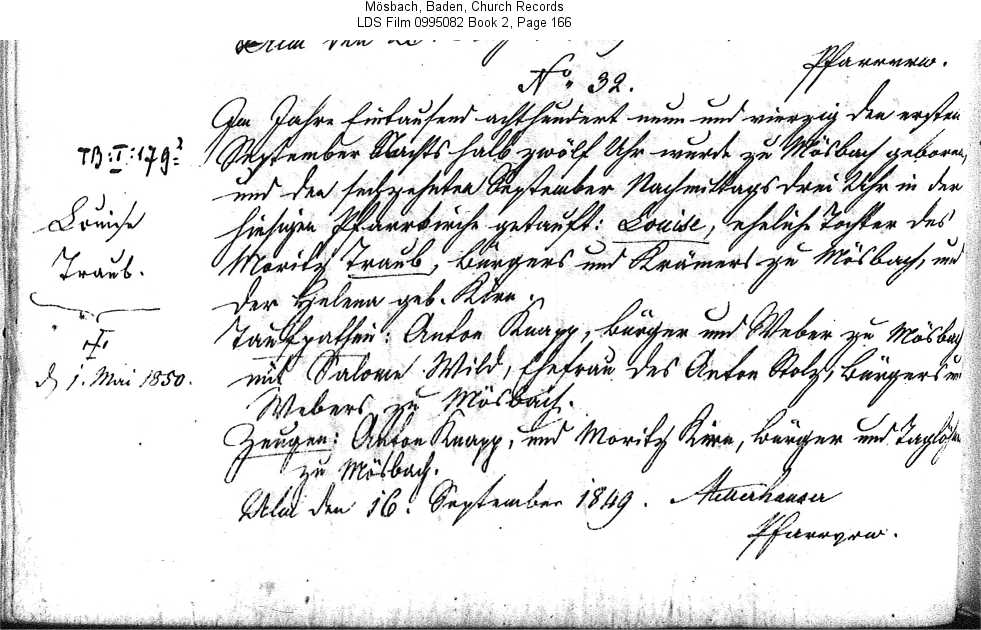 Mösbach, Baden, Church Records
LDS Film 0995082 Book 2, Page 166
Ulm den
Pfarrverw.
No. 32.
Im Jahre Eintausend achthundert neun und vierzig den ersten
September Nachts halb zwölf Uhr wurde zu Mösbach geboren,
und den sechzehnten September Nachmittags drei Uhr in der
hiesigen Pfarrkirche getauft: Louise, eheliche Tochter des
Moritz Traub, Bürgers und Krämers zu Mösbach, und
der Helena geb. Kirn.
Taufpathen: Anton Knapp, Bürger und Weber zu Mösbach
mit Salome Wild, Ehefrau des Anton Stolz, Bürgers und
Webers zu Mösbach.
Zeugen: Anton Knapp, und Moritz Kirn, Bürger und Taglöhner
zu Mösbach.
Ulm den 16. September 1849.
Pfarrverw.
TB: I: 179
Louise
Traub.
d 1. Mai 1850.